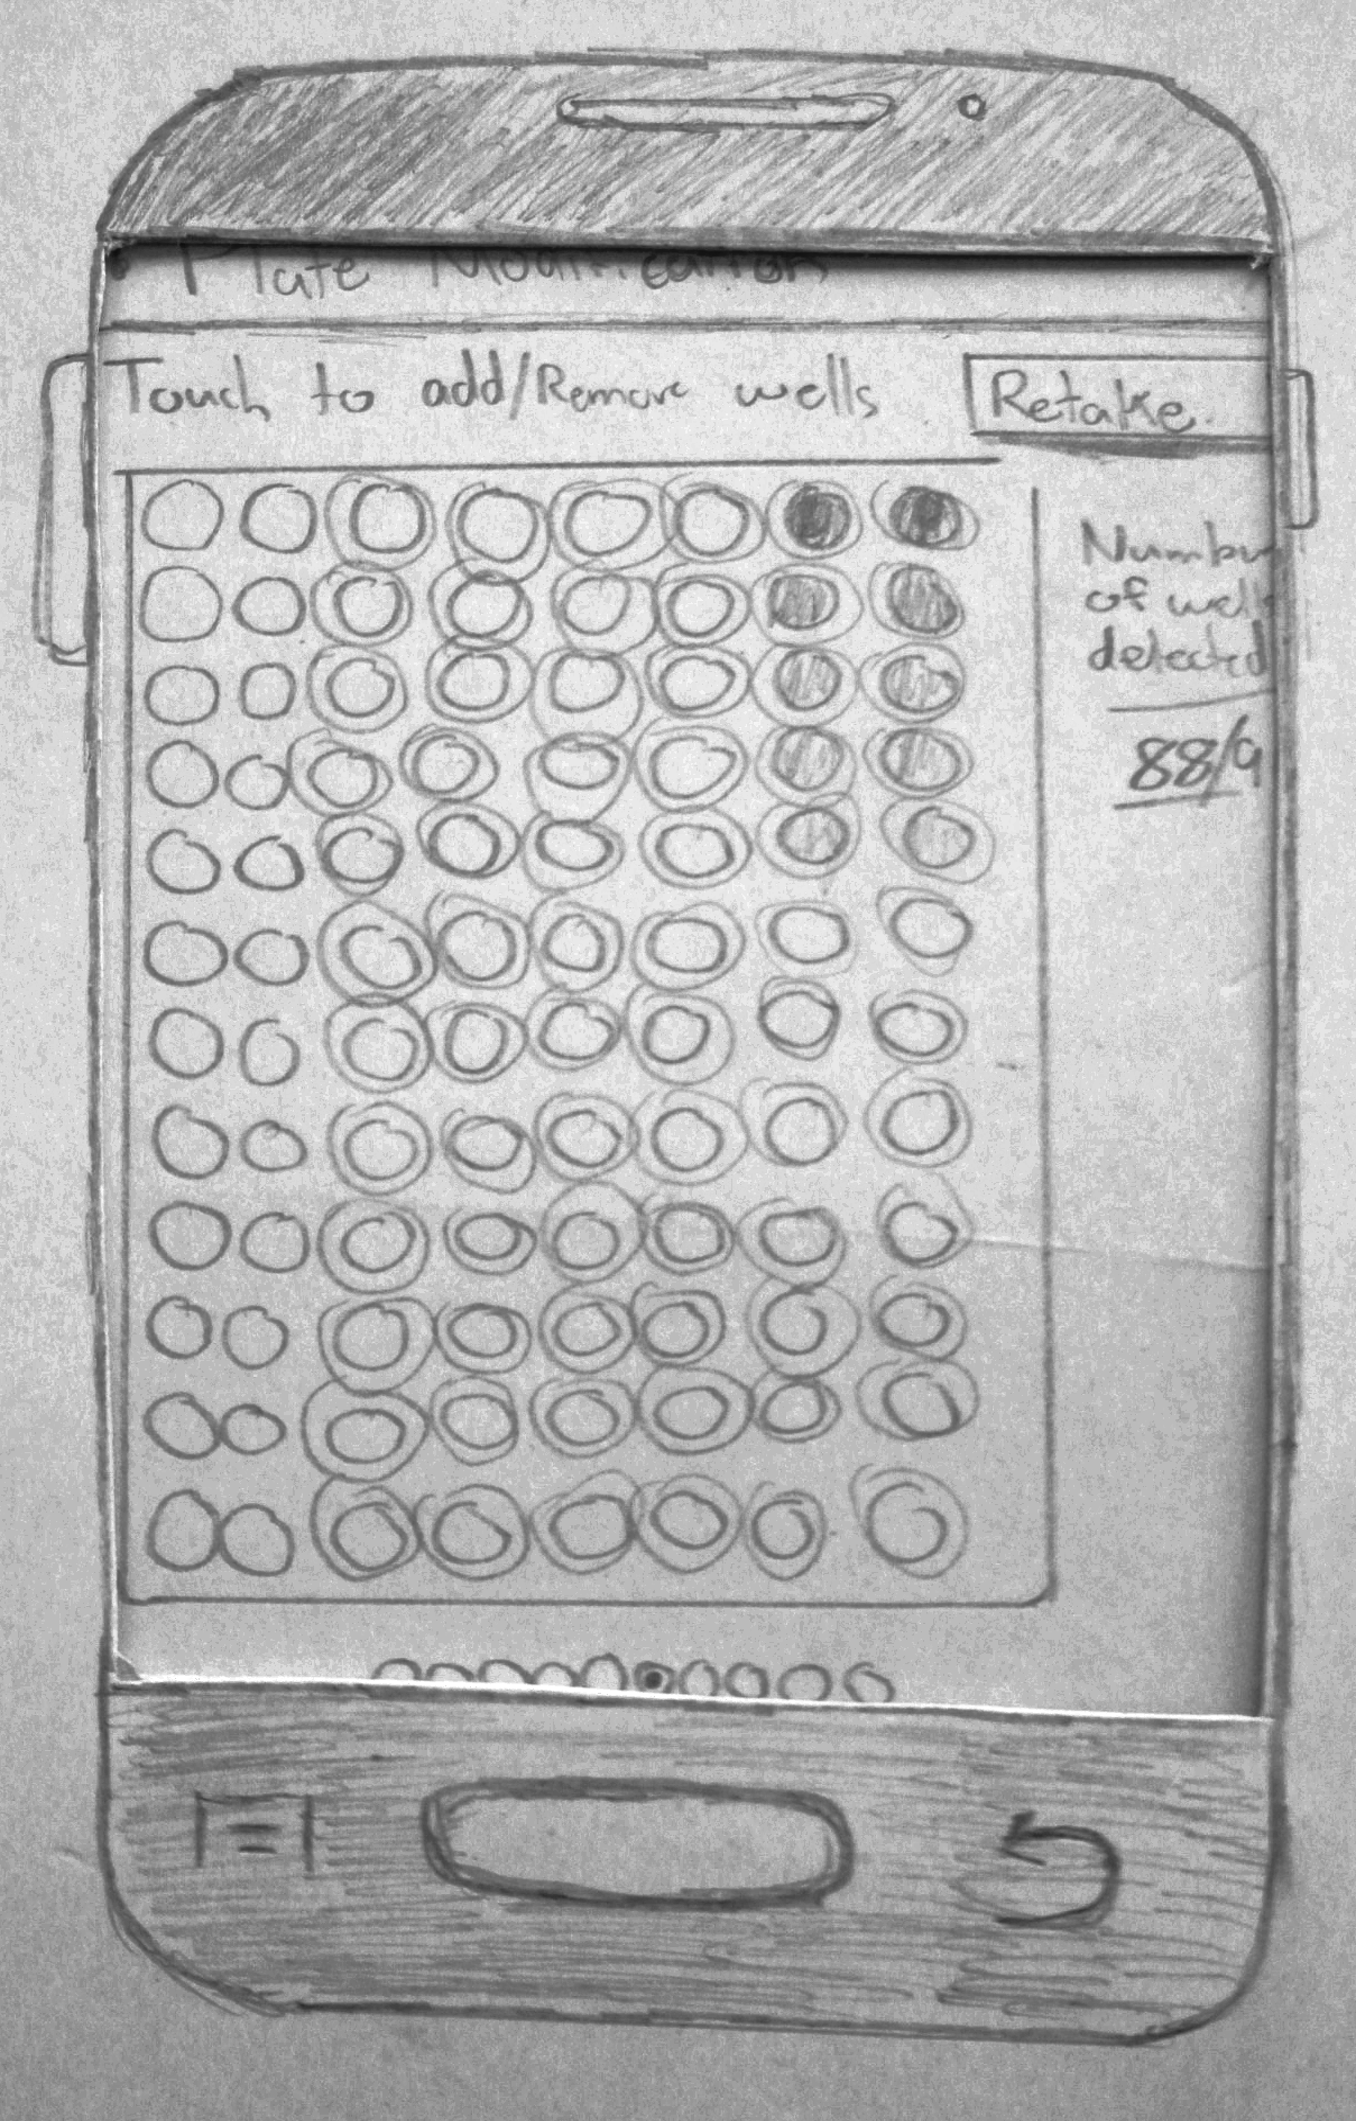 Plate Modification
Touch to add/Remove wells
Retake.
Number
of well
detected
88/9